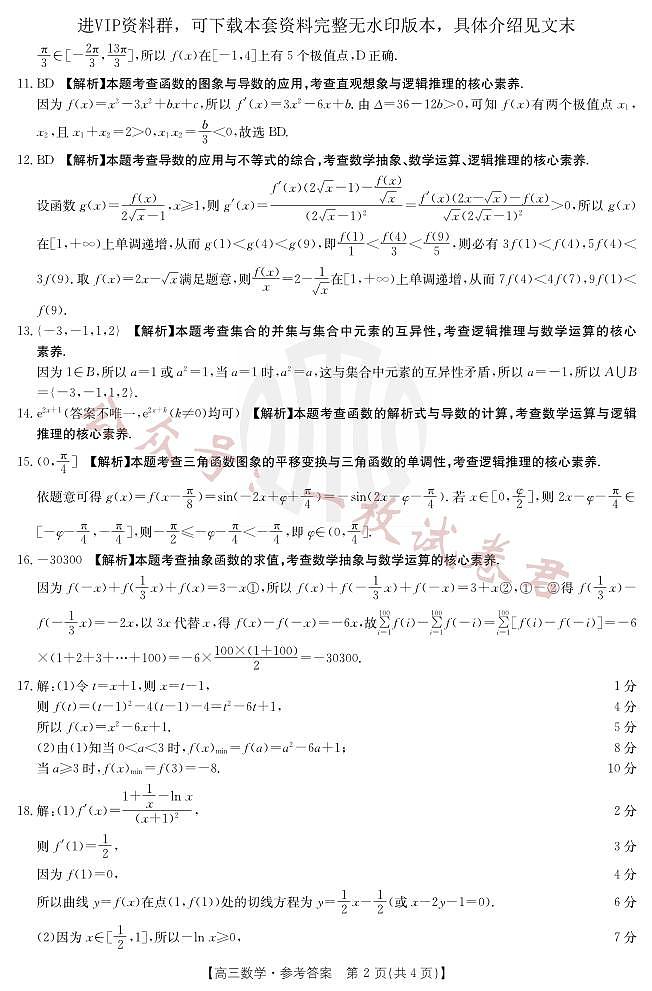 进VIP资料群，可下载本套资料完整无水印版本，具体介绍见文末
π/3∈[-2π/3,13π/3],所以 f(x)在[-1,4]上有 5 个极值点,D 正确.
11. BD 【解析】本题考查函数的图象与导数的应用,考查直观想象与逻辑推理的核心素养.
因为 f(x)=x³-3x²+bx+c,所以 f′(x)=3x²-6x+b.由 Δ=36-12b>0,可知 f(x)有两个极值点 x₁,
x₂,且 x₁+x₂=2>0,x₁x₂=b/3<0,故选 BD.
12. BD 【解析】本题考查导数的应用与不等式的综合,考查数学抽象、数学运算、逻辑推理的核心素养.
设函数 g(x)=f(x)/(2√x-1),x≥1,则 g′(x)=(f′(x)(2√x-1)-f(x)/√x)/(2√x-1)²=(f′(x)(2x-√x)-f(x))/(√x(2√x-1)²)>0,所以 g(x)
在[1,+∞)上单调递增,从而 g(1)<g(4)<g(9),即f(1)/1<f(4)/3<f(9)/5,则必有 3f(1)<f(4),5f(4)<
3f(9).取 f(x)=2x-√x满足题意,则f(x)/x=2-1/√x在[1,+∞)上单调递增,从而 7f(4)<4f(7),9f(1)<
f(9).
13. {-3,-1,1,2} 【解析】本题考查集合的并集与集合中元素的互异性,考查逻辑推理与数学运算的核心
素养.
因为 1∈B,所以 a=1 或 a²=1,当 a=1 时,a²=a,这与集合中元素的互异性矛盾,所以 a=-1,所以 A∪B
={-3,-1,1,2}.
14. e²ˣ⁺¹(答案不唯一,e²ˣ⁺ᵏ(k≠0)均可) 【解析】本题考查函数的解析式与导数的计算,考查数学运算与逻辑
推理的核心素养.
15. (0,π/4] 【解析】本题考查三角函数图象的平移变换与三角函数的单调性,考查逻辑推理的核心素养.
依题意可得 g(x)=f(x-π/8)=sin(-2x+φ+π/4)=-sin(2x-φ-π/4).若 x∈[0,φ/2],则 2x-φ-π/4∈
[-φ-π/4,-π/4],则-π/2≤-φ-π/4<-π/4,即 φ∈(0,π/4].
16. -30300 【解析】本题考查抽象函数的求值,考查数学抽象与数学运算的核心素养.
因为 f(-x)+f(1/3x)+f(x)=3-x①,所以 f(x)+f(-1/3x)+f(-x)=3+x②,①-②得 f(1/3x)-
f(-1/3x)=-2x,以 3x 代替 x,得 f(x)-f(-x)=-6x,故∑(i=1→100)f(i)-∑(i=1→100)f(-i)=∑(i=1→100)[f(i)-f(-i)]=-6
×(1+2+3+…+100)=-6×100×(1+100)/2=-30300.
17. 解:(1)令 t=x+1,则 x=t-1, 1 分
则 f(t)=(t-1)²-4(t-1)-4=t²-6t+1, 4 分
所以 f(x)=x²-6x+1. 5 分
(2)由(1)知当 0<a<3 时,f(x)min=f(a)=a²-6a+1; 8 分
当 a≥3 时,f(x)min=f(3)=-8. 10 分
18. 解:(1)f′(x)=(1+1/x-ln x)/(x+1)², 2 分
则 f′(1)=1/2, 3 分
因为 f(1)=0, 4 分
所以曲线 y=f(x)在点(1,f(1))处的切线方程为 y=1/2x-1/2(或 x-2y-1=0). 6 分
(2)因为 x∈[1/2,1],所以-ln x≥0, 7 分
【高三数学·参考答案 第 2 页(共 4 页)】
公众号:一枚试卷君